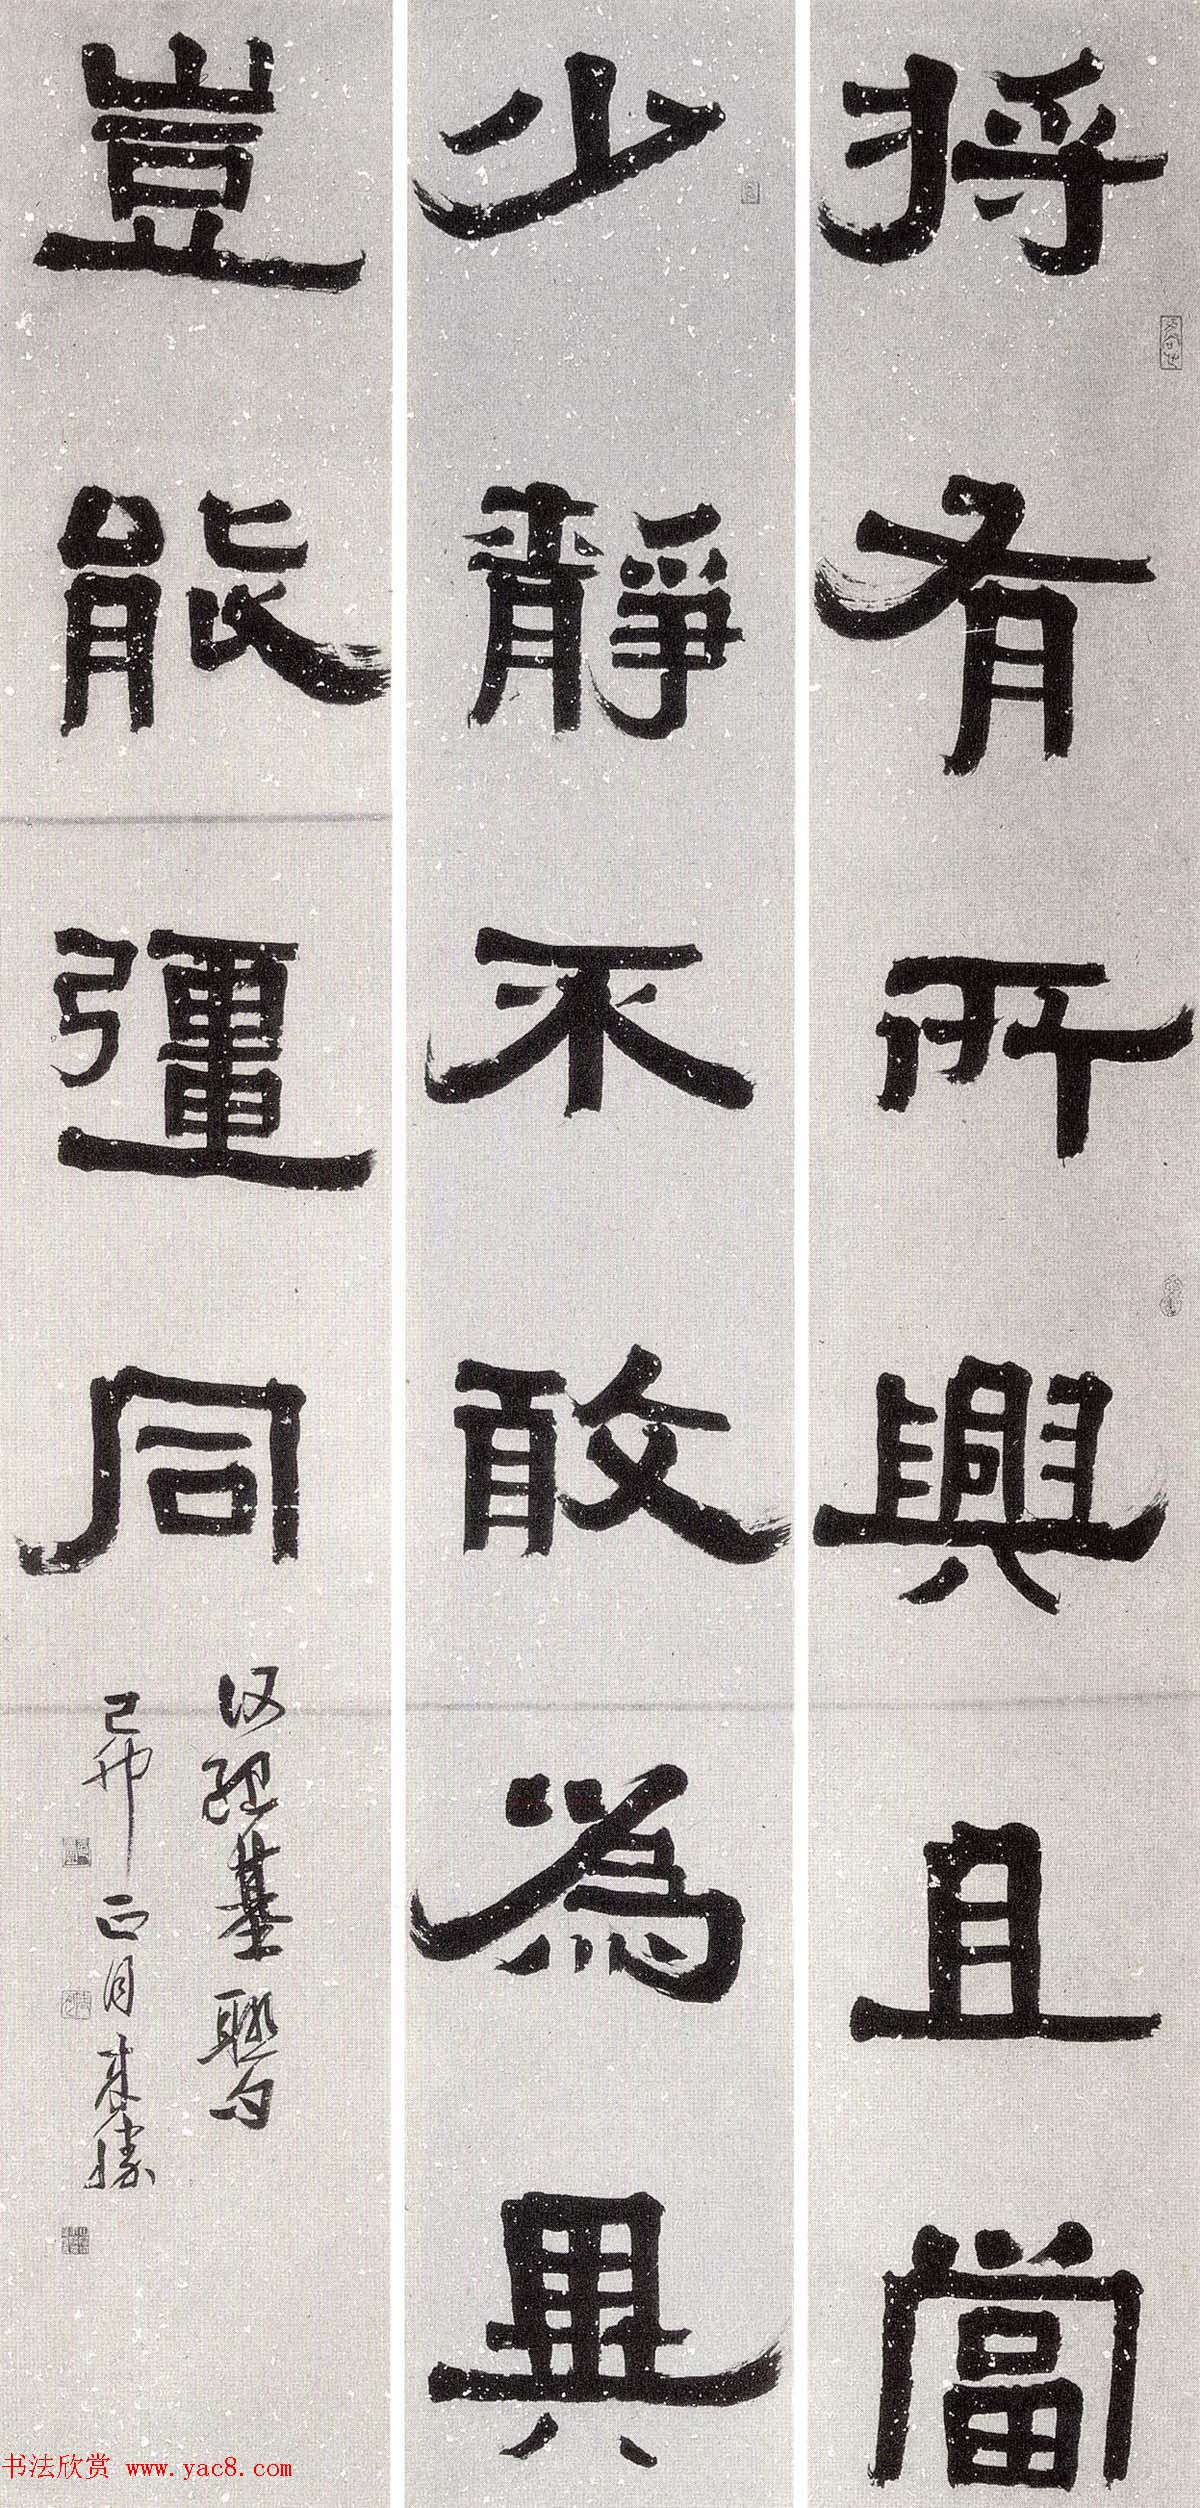 将有所興且當
少靜不敢為異
豈能彊同
何紹基聯句
己卯正月來勝
书法欣赏 www.yac8.com